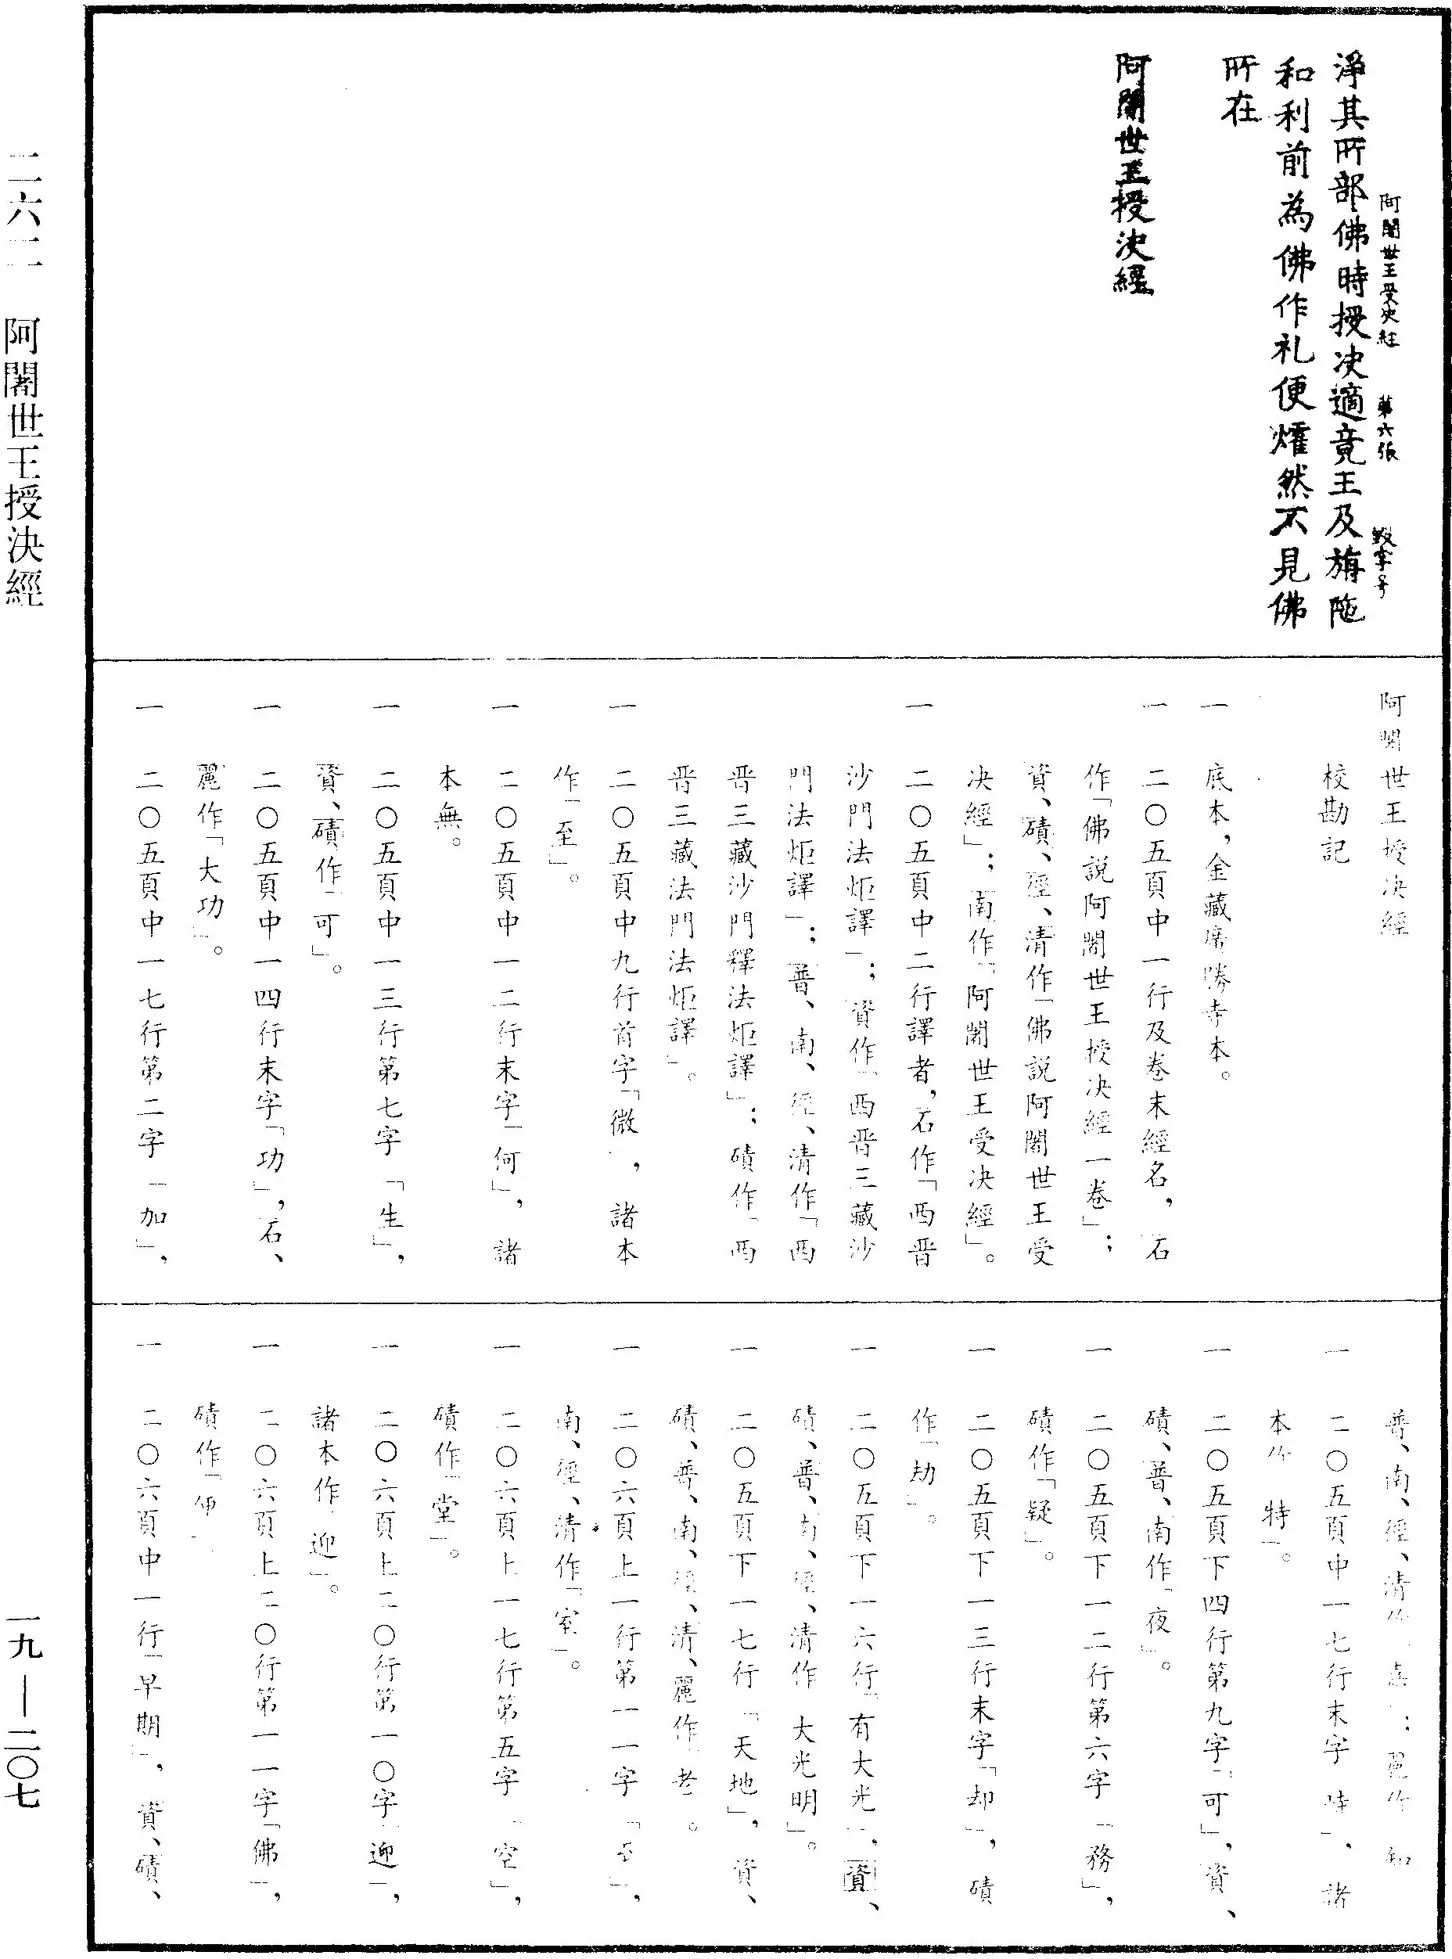 阿闍世王受决經　第六張　毀字号
淨其所部佛時授决適竟王及旃陁
和利前為佛作礼便㸌然不見佛
所在
阿闍世王授决經
阿闍世王授决經
校勘記
一　底本，金藏廣勝寺本。
一　二〇五頁中一行及卷末經名，石
作「佛説阿闍世王授决經一卷」；
資、磧、徑、清作「佛説阿闍世王受
决經」；南作「阿闍世王受决經」。
一　二〇五頁中二行譯者，石作「西晋
沙門法炬譯」；資作「西晋三藏沙
門法炬譯」；普、南、徑、清作「西
晋三藏沙門釋法炬譯」；磧作「西
晋三藏法門法炬譯」。
一　二〇五頁中九行首字「微」，諸本
作「至」。
一　二〇五頁中一二行末字「何」，諸
本無。
一　二〇五頁中一三行第七字「生」，
資、磧作「可」。
一　二〇五頁中一四行末字「功」，石、
麗作「大功」。
一　二〇五頁中一七行第二字「加」，
普、南、徑、清作「」；麗作「知
一　二〇五頁中一七行末字「時」，諸
本作「特」。
一　二〇五頁下四行第九字「可」，資、
磧、普、南作「夜」。
一　二〇五頁下一二行第六字「務」，
磧作「疑」。
一　二〇五頁下一三行末字「却」，磧
作「劫」。
一　二〇五頁下一六行「有大光」，資、
磧、普、南、徑、清作「大光明」。
一　二〇五頁下一七行「天地」，資、
磧、普、南、徑、清、麗作「」。
一　二〇六頁上一行第一一字「」，
南、徑、清作「室」。
一　二〇六頁上一七行第五字「空」，
磧作「堂」。
一　二〇六頁上二〇行第一〇字「迎」，
諸本作「迎」。
一　二〇六頁上二〇行第一一字「佛」，
磧作「」
一　二〇六頁中一行「早期」，資、磧、
二六二　阿闍世王授決經
一九—二〇七